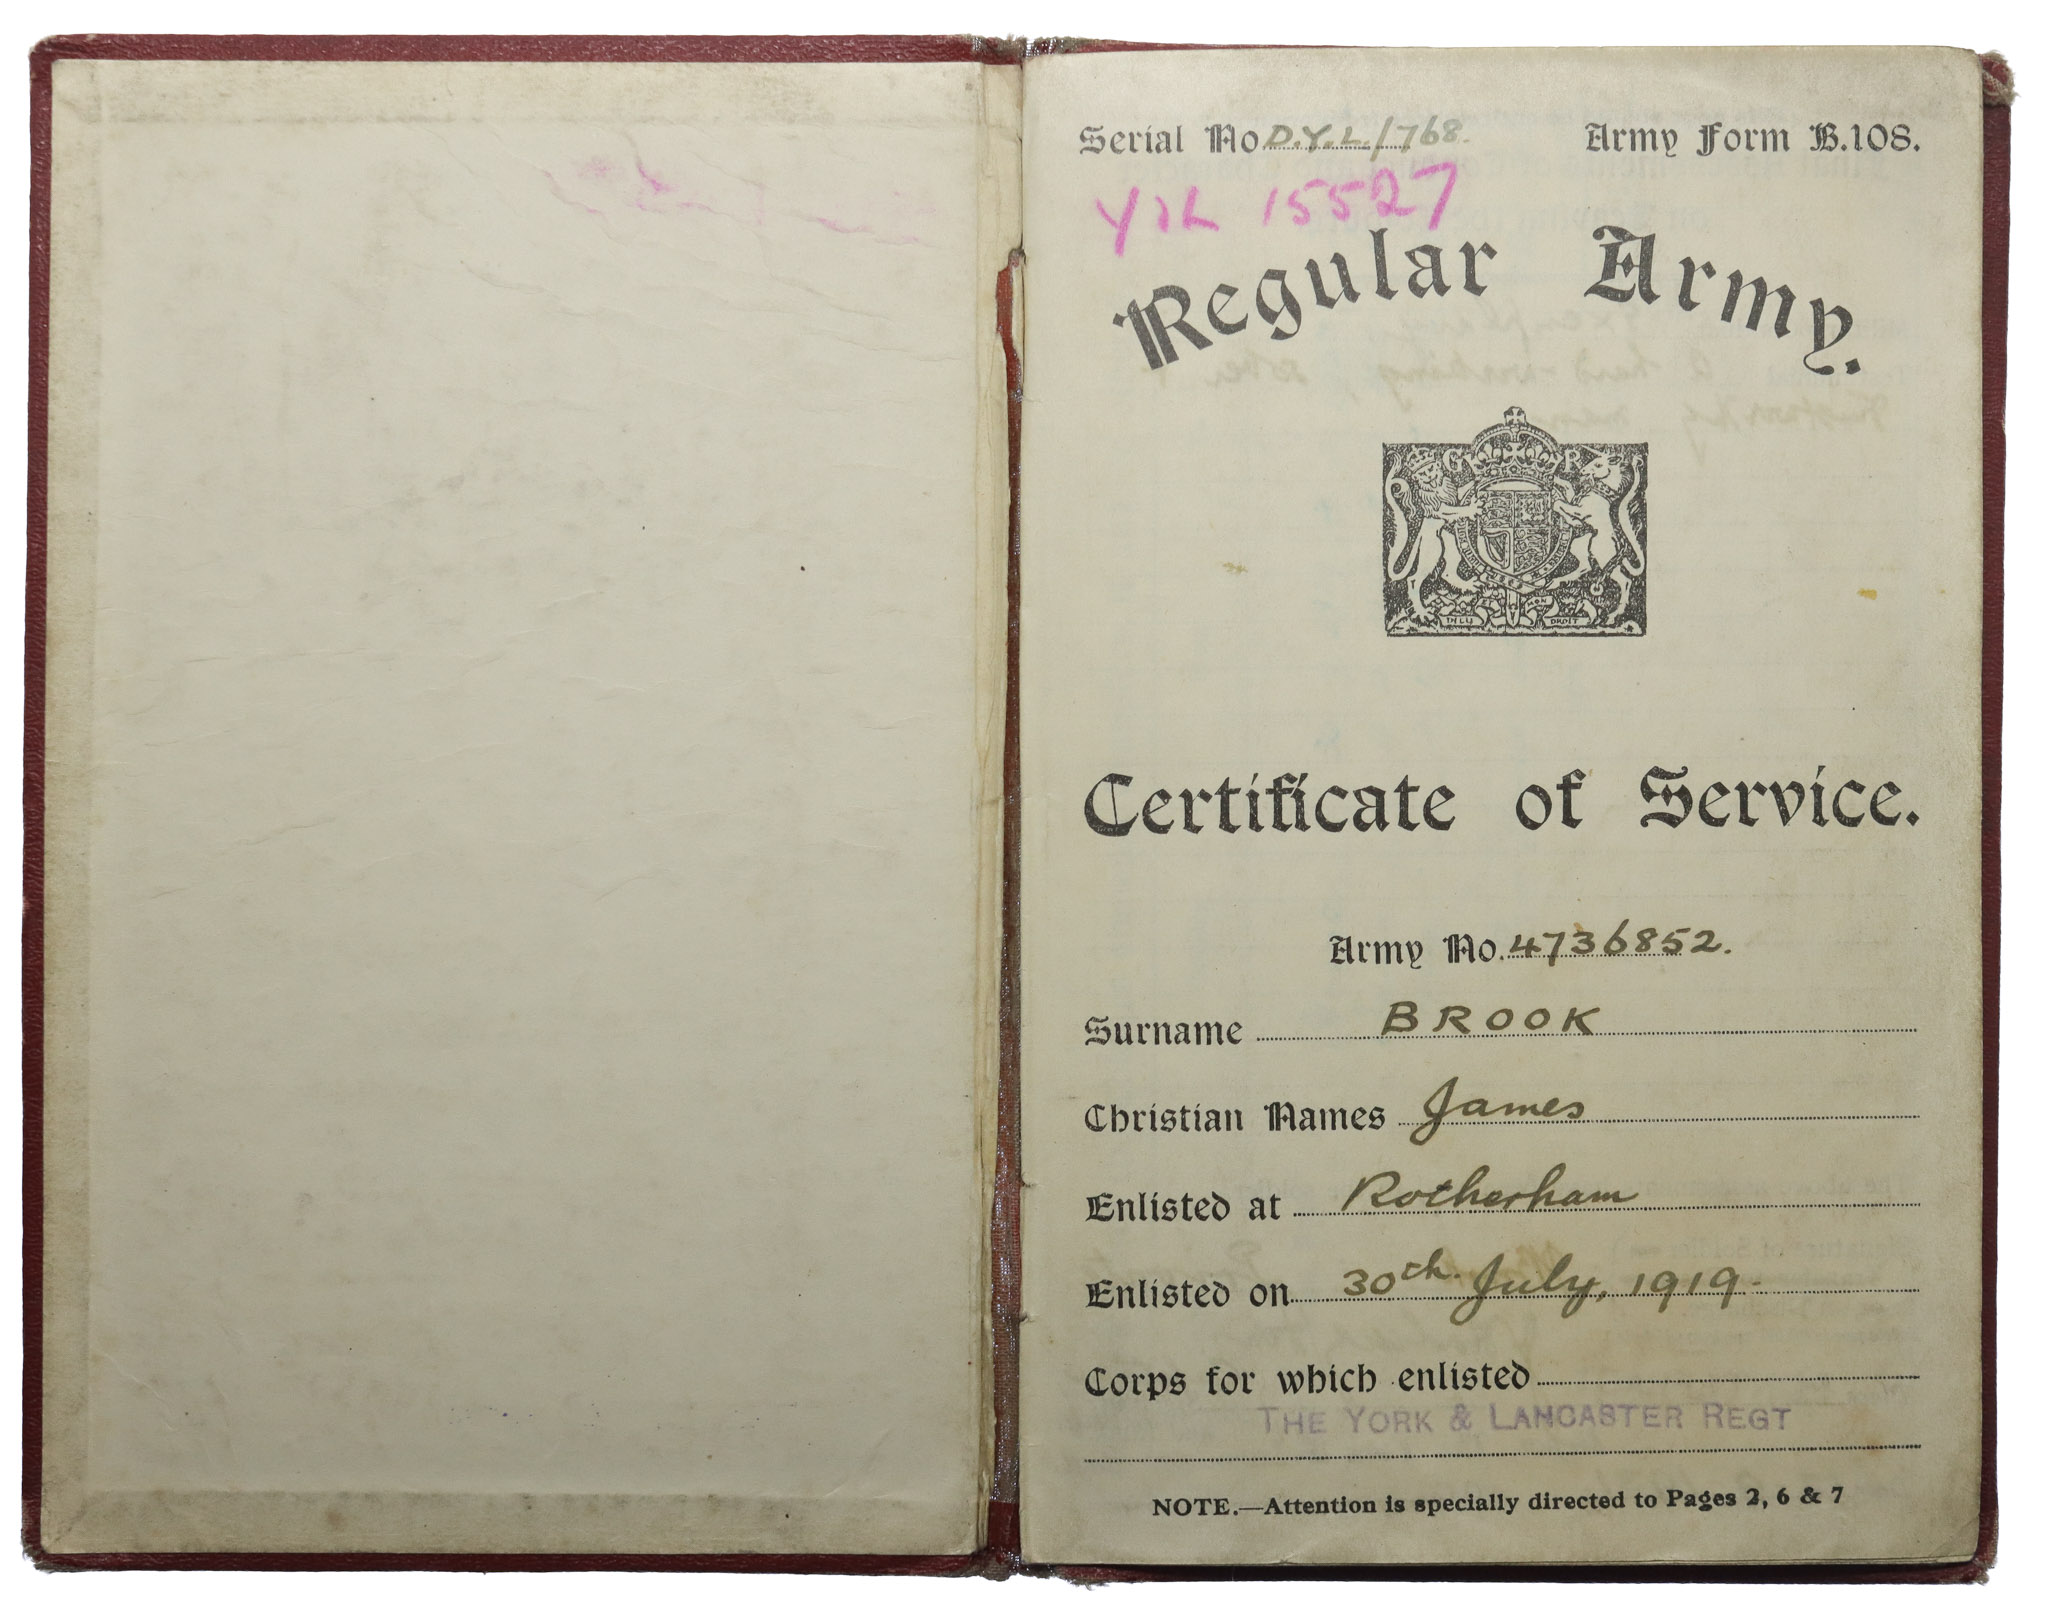 Serial No D.Y.L./768. Army Form B.108.
15527
Regular Army.
G R
DROIT
Certificate of Service.
Army No. 4736852.
Surname BROOK
Christian Names James
Enlisted at Rotherham
Enlisted on 30th. July, 1919.
Corps for which enlisted
THE YORK & LANCASTER REGT
NOTE.—Attention is specially directed to Pages 2, 6 & 7